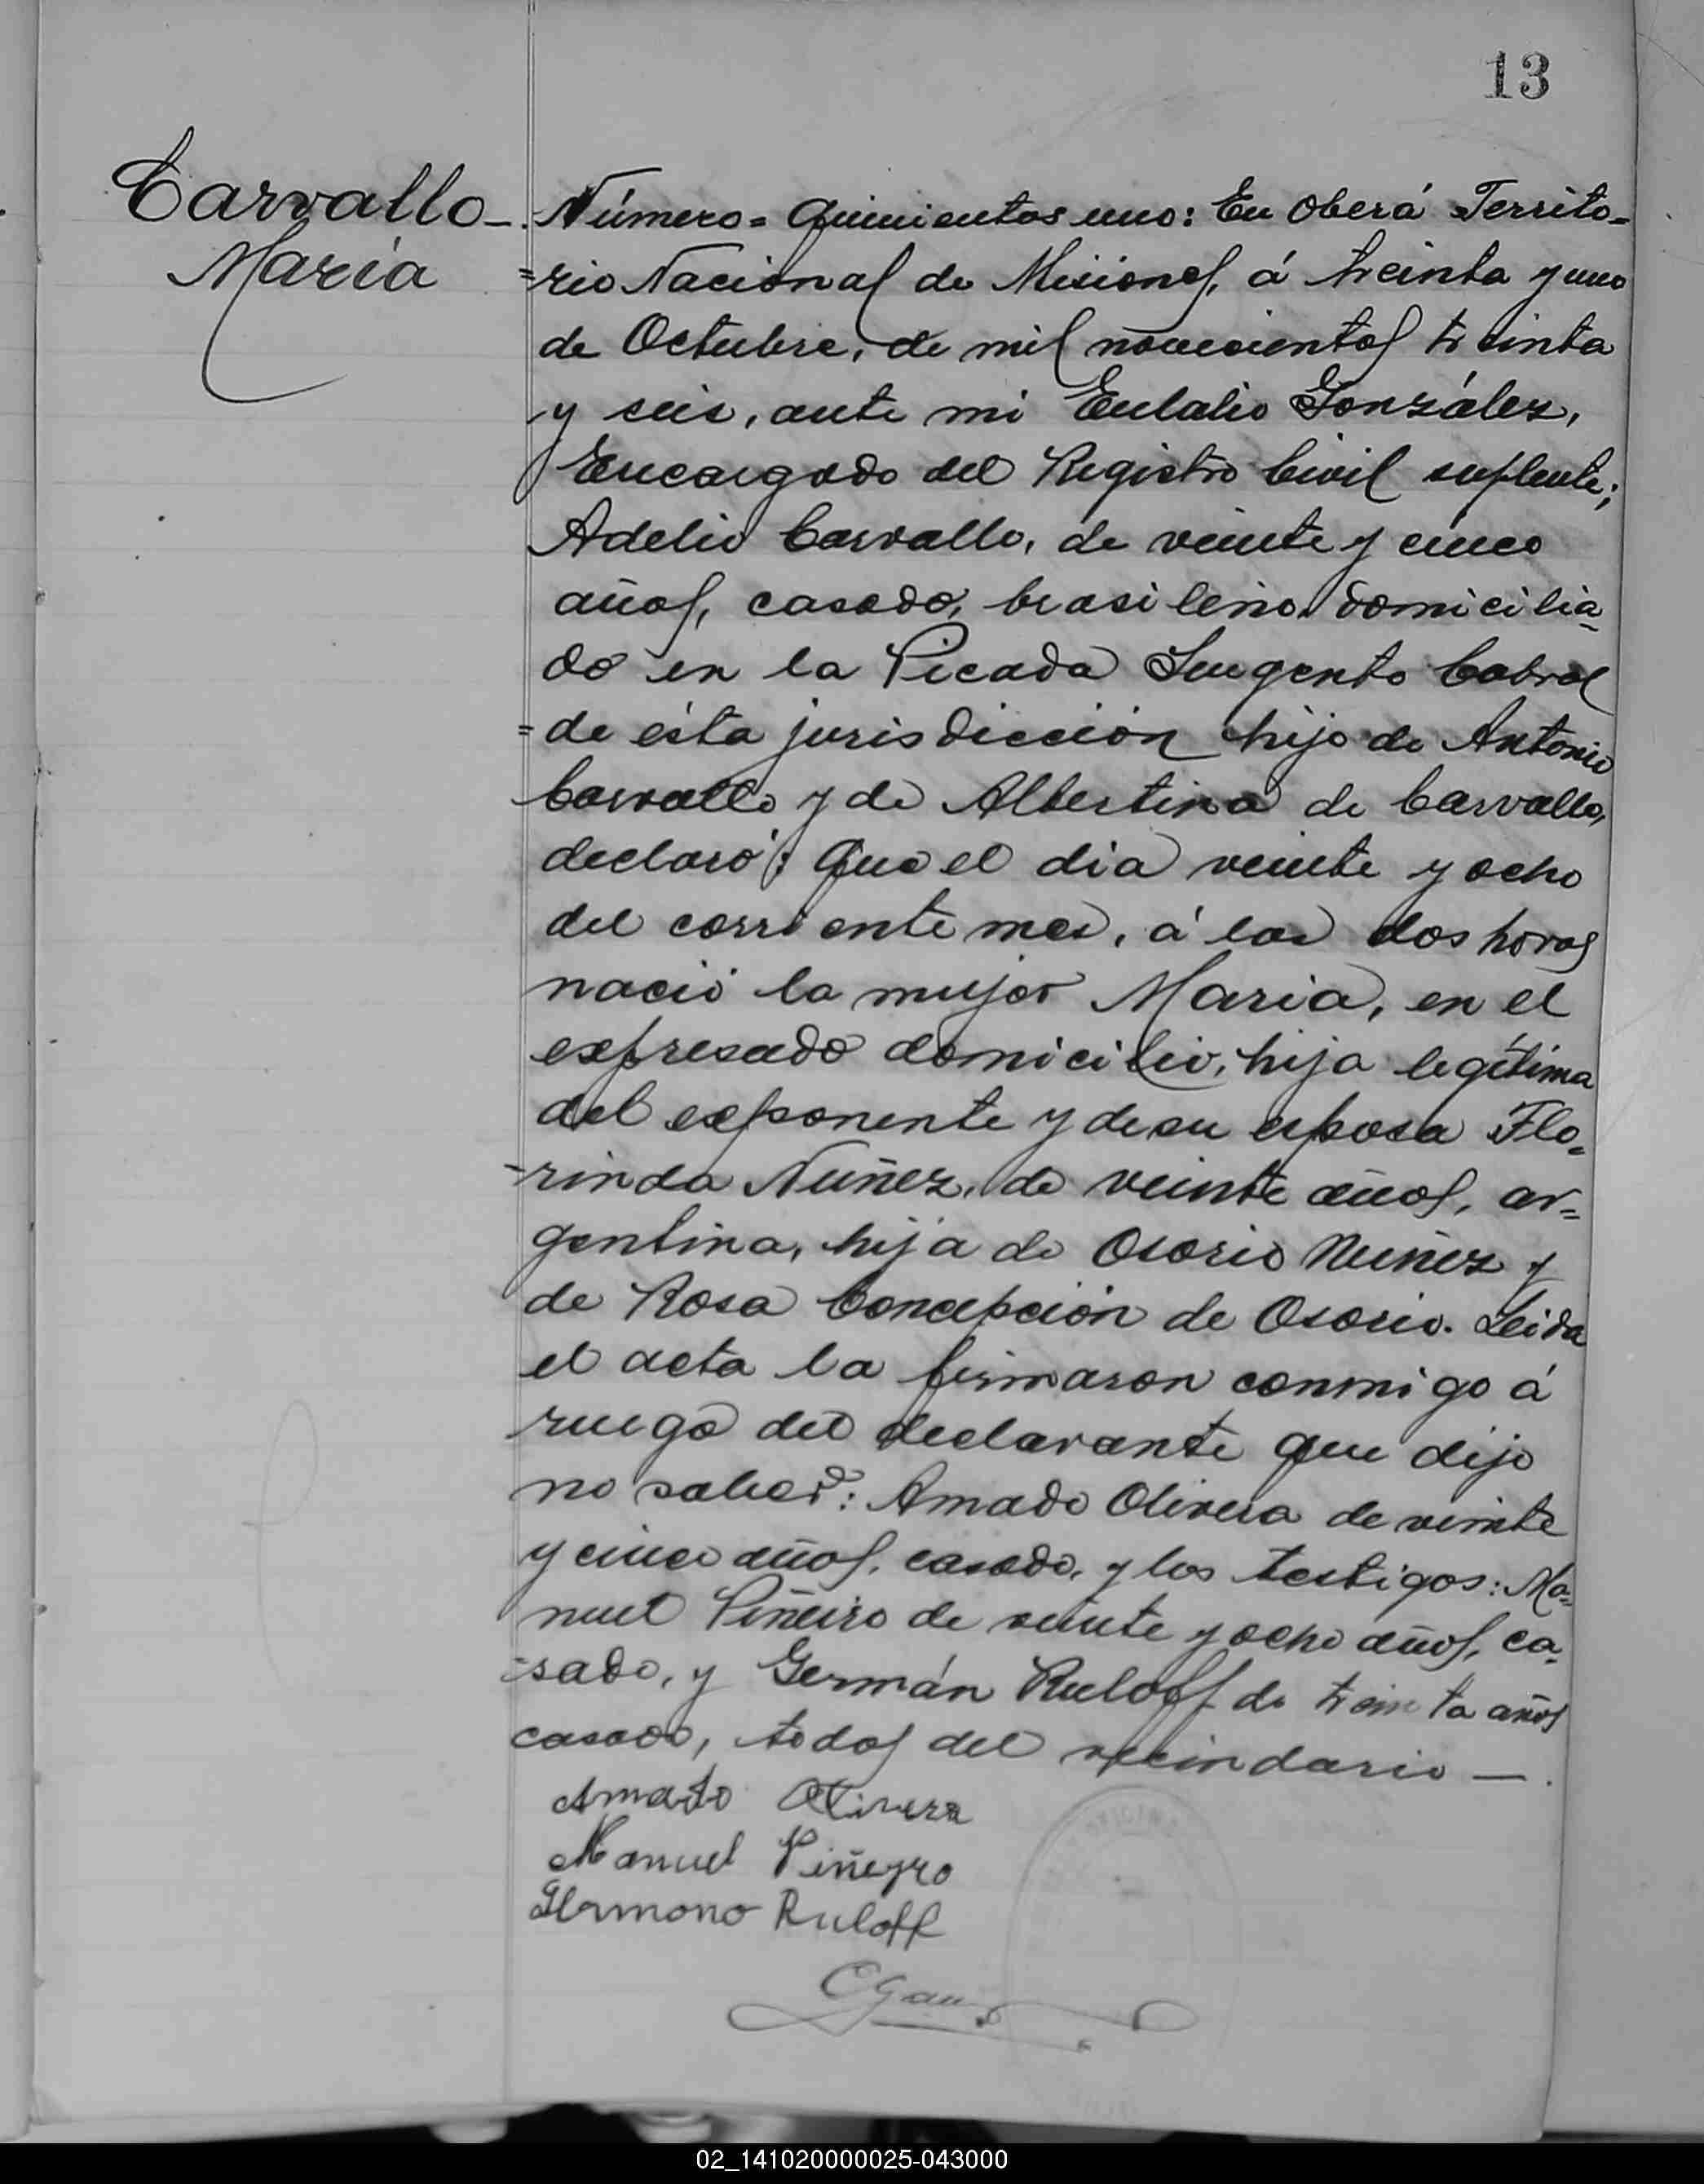 13
Carvallo
María
Número = Quinientos uno: En Oberá Territo=
=rio Nacional de Misiones, á treinta y uno
de Octubre, de mil novecientos treinta
y seis, ante mi Eulalio González,
Encargado del Registro Civil suplente;
Adelio Carvallo, de veinte y cinco
años, casado, brasileño, domicilia=
do en la Picada Sargento Cabral
=de ésta jurisdicción hijo de Antonio
Carvallo y de Albertina de Carvallo,
declaró: Que el dia veinte y ocho
del corriente mes, á las dos horas
nació la mujer Maria, en el
expresado domicilio, hija legítima
del exponente y de su esposa Flo=
=rinda Nuñez, de veinte años, ar=
gentina, hija de Osorio Nuñez y
de Rosa Concepción de Osorio. Leida
el acta la firmaron conmigo á
ruego del declarante que dijo
no saber: Amado Olivera de veinte
y cinco años, casado, y los testigos: Ma=
nuel Piñeiro de veinte y ocho años, ca=
=sado, y Germán Ruloff de treinta años
casado, todos del vecindario —.
Amado Olivera
Manuel Piñeyro
Hermono Ruloff
02_141020000025-043000